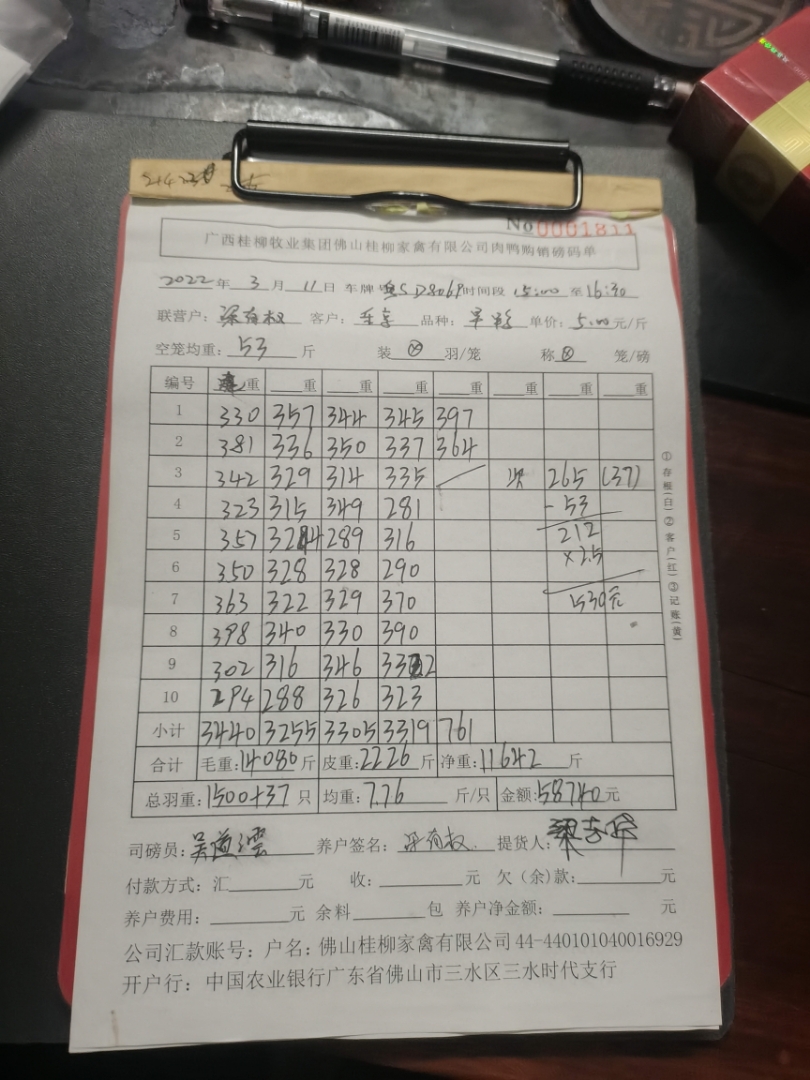 No 0001811
广西桂柳牧业集团佛山桂柳家禽有限公司肉鸭购销磅码单
2022年 3月 11日 车牌 粤SD8069 时间段 15:00 至 16:30
联营户: 梁有权 客户: 品种: 单价: 5.00 元/斤
空笼均重: 53 斤 装 ⊗ 羽/笼 称 ⊗ 笼/磅
编号 重 重 重 重 重 重 重 重
1 330 357 344 345 397
2 381 336 350 337 364
3 342 329 314 335 265 (37)
4 323 315 349 281 -53
5 357 324 289 316 212
6 350 328 328 290 ×2.5
7 363 322 329 370 530元
8 398 340 330 390
9 302 316 346 332
10 294 288 326 323
小计 3440 3255 3305 3319 761
合计 毛重: 14080 斤 皮重: 2226 斤 净重: 11642 斤
总羽重: 1500+37 只 均重: 7.76 斤/只 金额: 58740 元
司磅员: 养户签名: 梁有权 提货人:
付款方式: 汇 元 收: 元 欠(余)款: 元
养户费用: 元 余料 包 养户净金额: 元
公司汇款账号: 户名: 佛山桂柳家禽有限公司 44-440101040016929
开户行: 中国农业银行广东省佛山市三水区三水时代支行
①存根(白)②客户(红)③记账(黄)